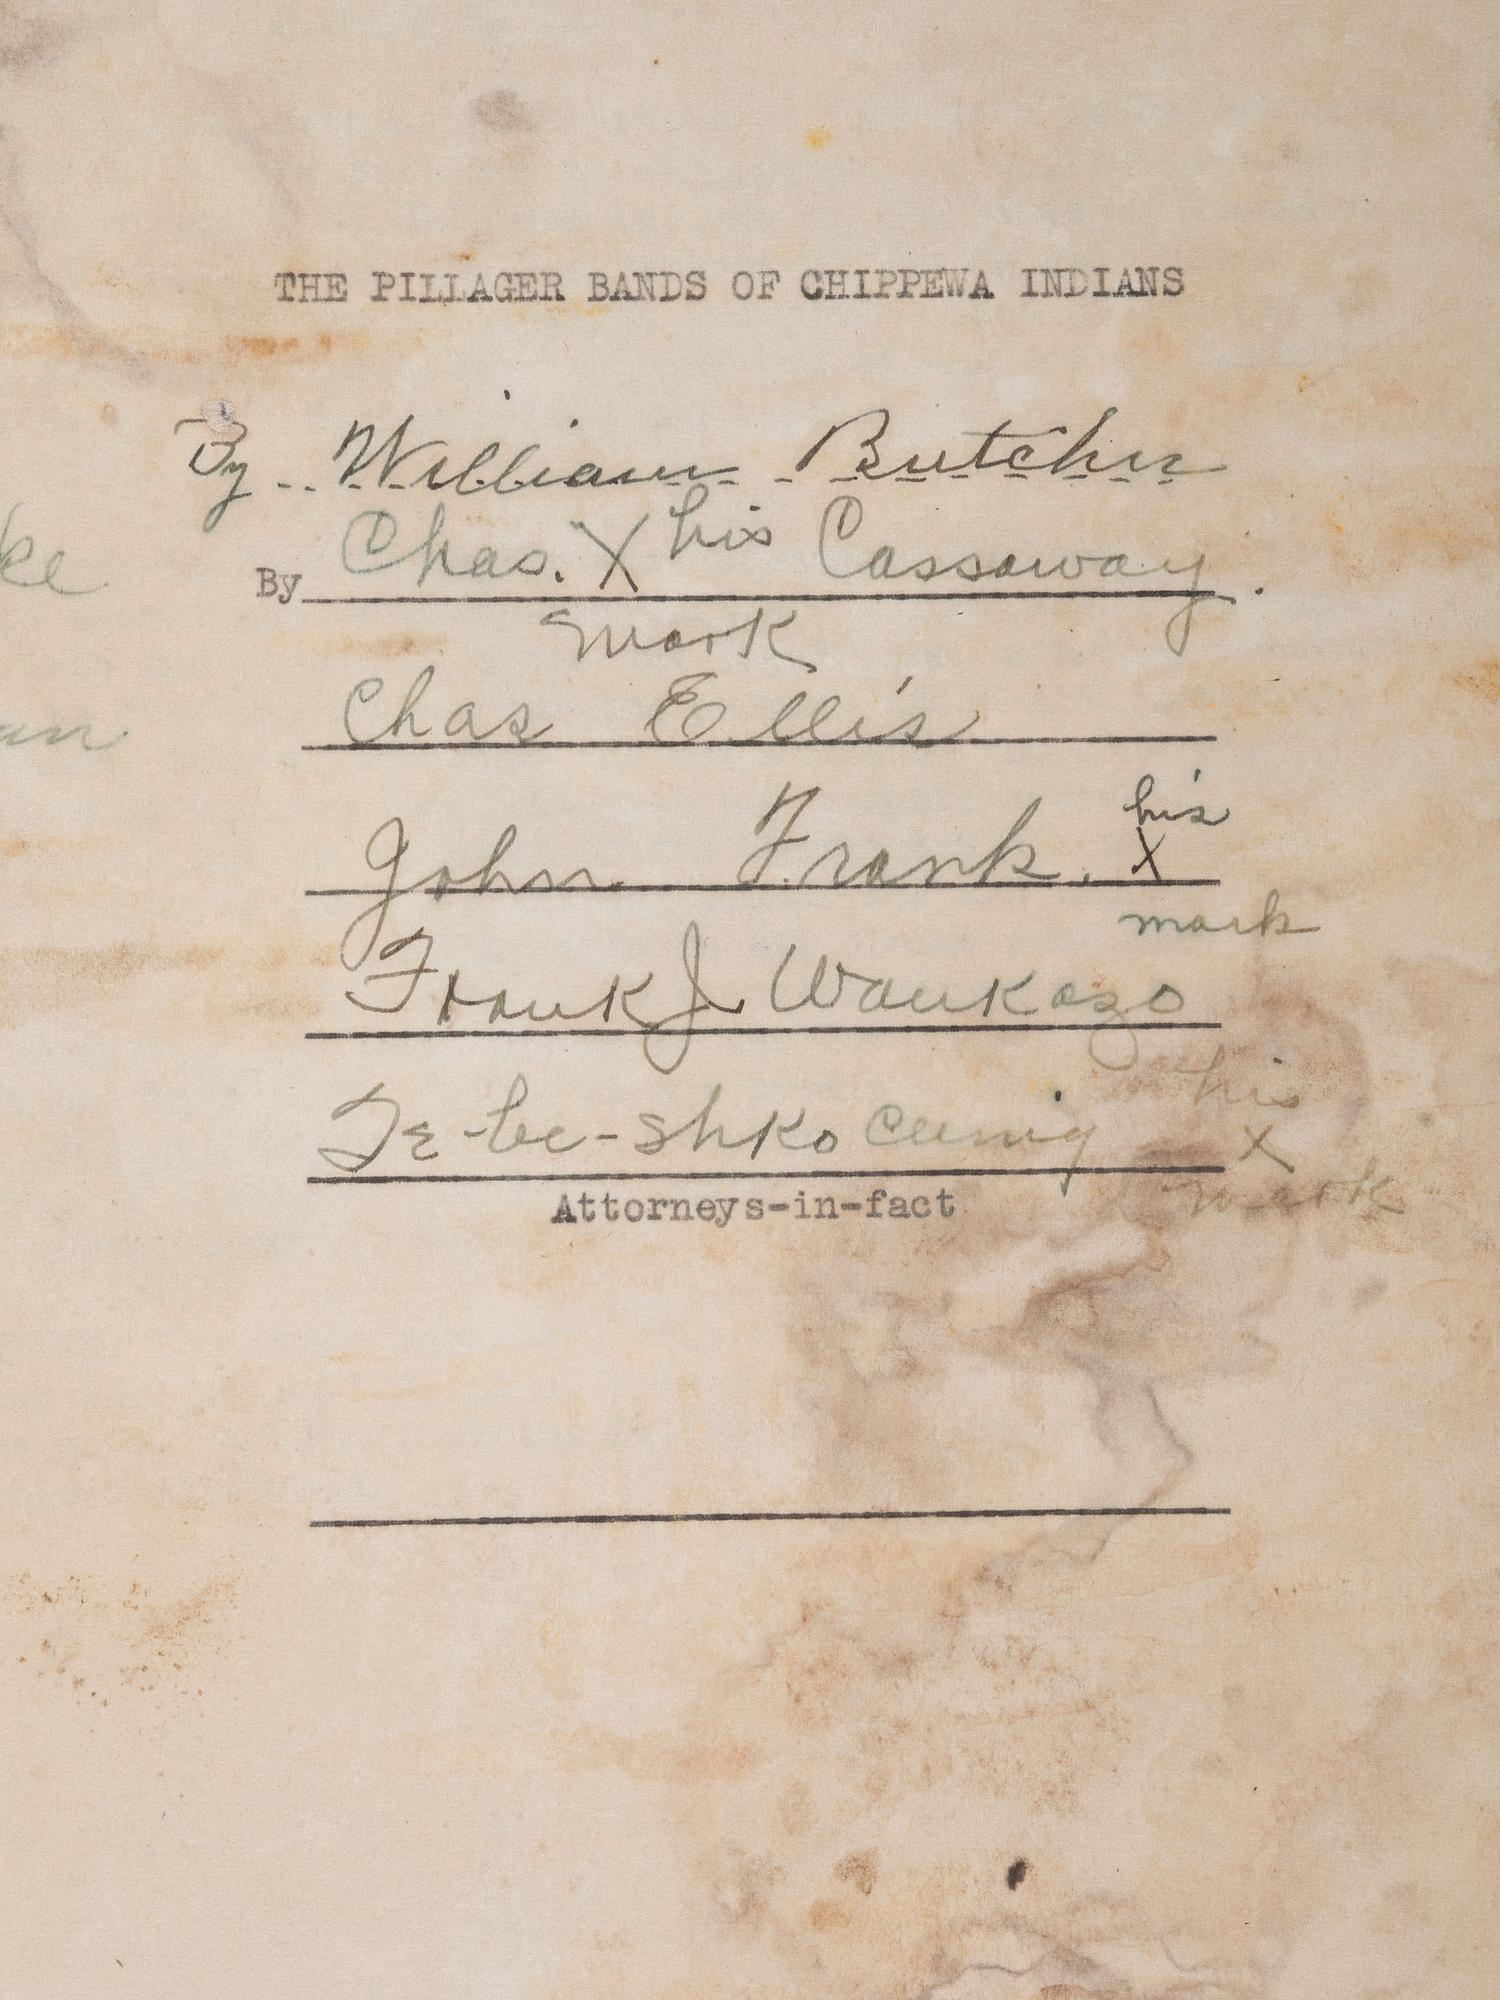 THE PILLAGER BANDS OF CHIPPEWA INDIANS
By William Butcher
By Chas. X his Cassaway.
mark
Chas Ellis
his
John Frank. X
mark
Frank J Waukazo
his
Te-be-shko X
mark
Attorneys-in-fact